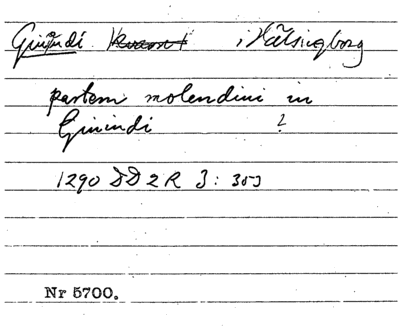 Giufundi kvarnt i Hälsingborg
partem molendini in
Giuindi ?
1290 DD 2 R 3: 353
Nr 5700.